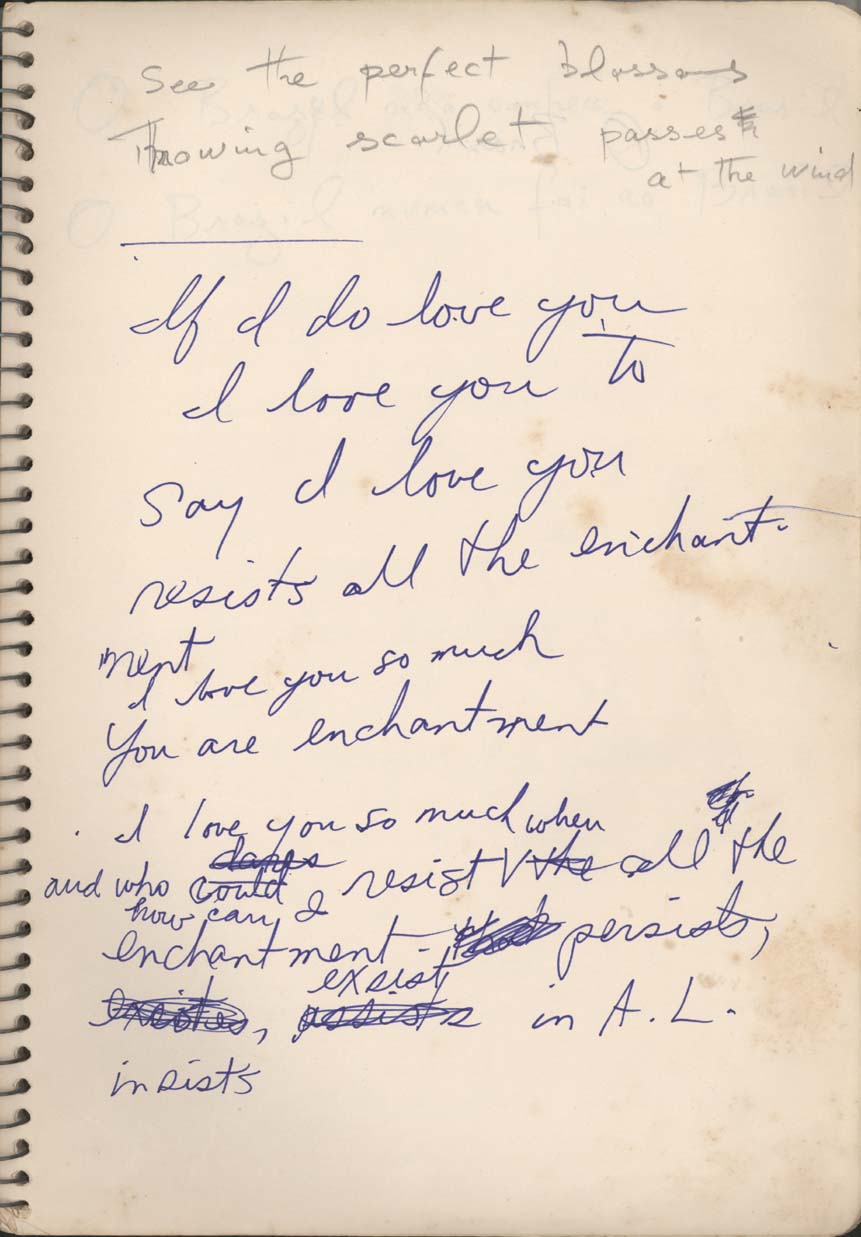 See the perfect blossoms
Throwing scarlet passes
at the wind
If I do love you
I love you to
say I love you
resists all the enchant-
ment
I love you so much
You are enchantment
I love you so much when
dares
and who could I resist the all the
how can
enchantment - persists,
exsist
exsists, assists in A.L.
insists